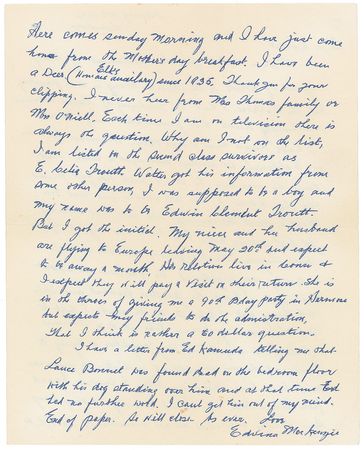 Here comes sunday morning and I have just come
home from the Mother's day breakfast. I have been
a Deer. (Womens Elks auxiliary) since 1935. Thank you for your
clipping. I never hear from Mrs Thomas family or
Mrs O'Neill. Each time I am on television there is
always the question. Why am I not on the list,
I am listed on the second class survivors as
E. Celia Troutt. Walter got his information from
some other person, I was supposed to be a boy and
my name was to be Edwin Troutt.
But I got the initial. My niece and her husband
are flying to Europe leaving May 20th and expect
to be away a month, His relatives live in &
I expect they will pay a visit on their return. She is
in the throes of giving me a 90th Bday party in Hermosa
but expects my friends to do the administration.
That I think is rather a 60 dollar question.
I have a letter from Ed Kamuda telling me that
Lance Bonnel was found dead on the bedroom floor
with his dog standing over him and at that time Ed
had no further word. I can't get him out of my mind.
End of paper. So will close As ever. Love
Edwina MacKenzie